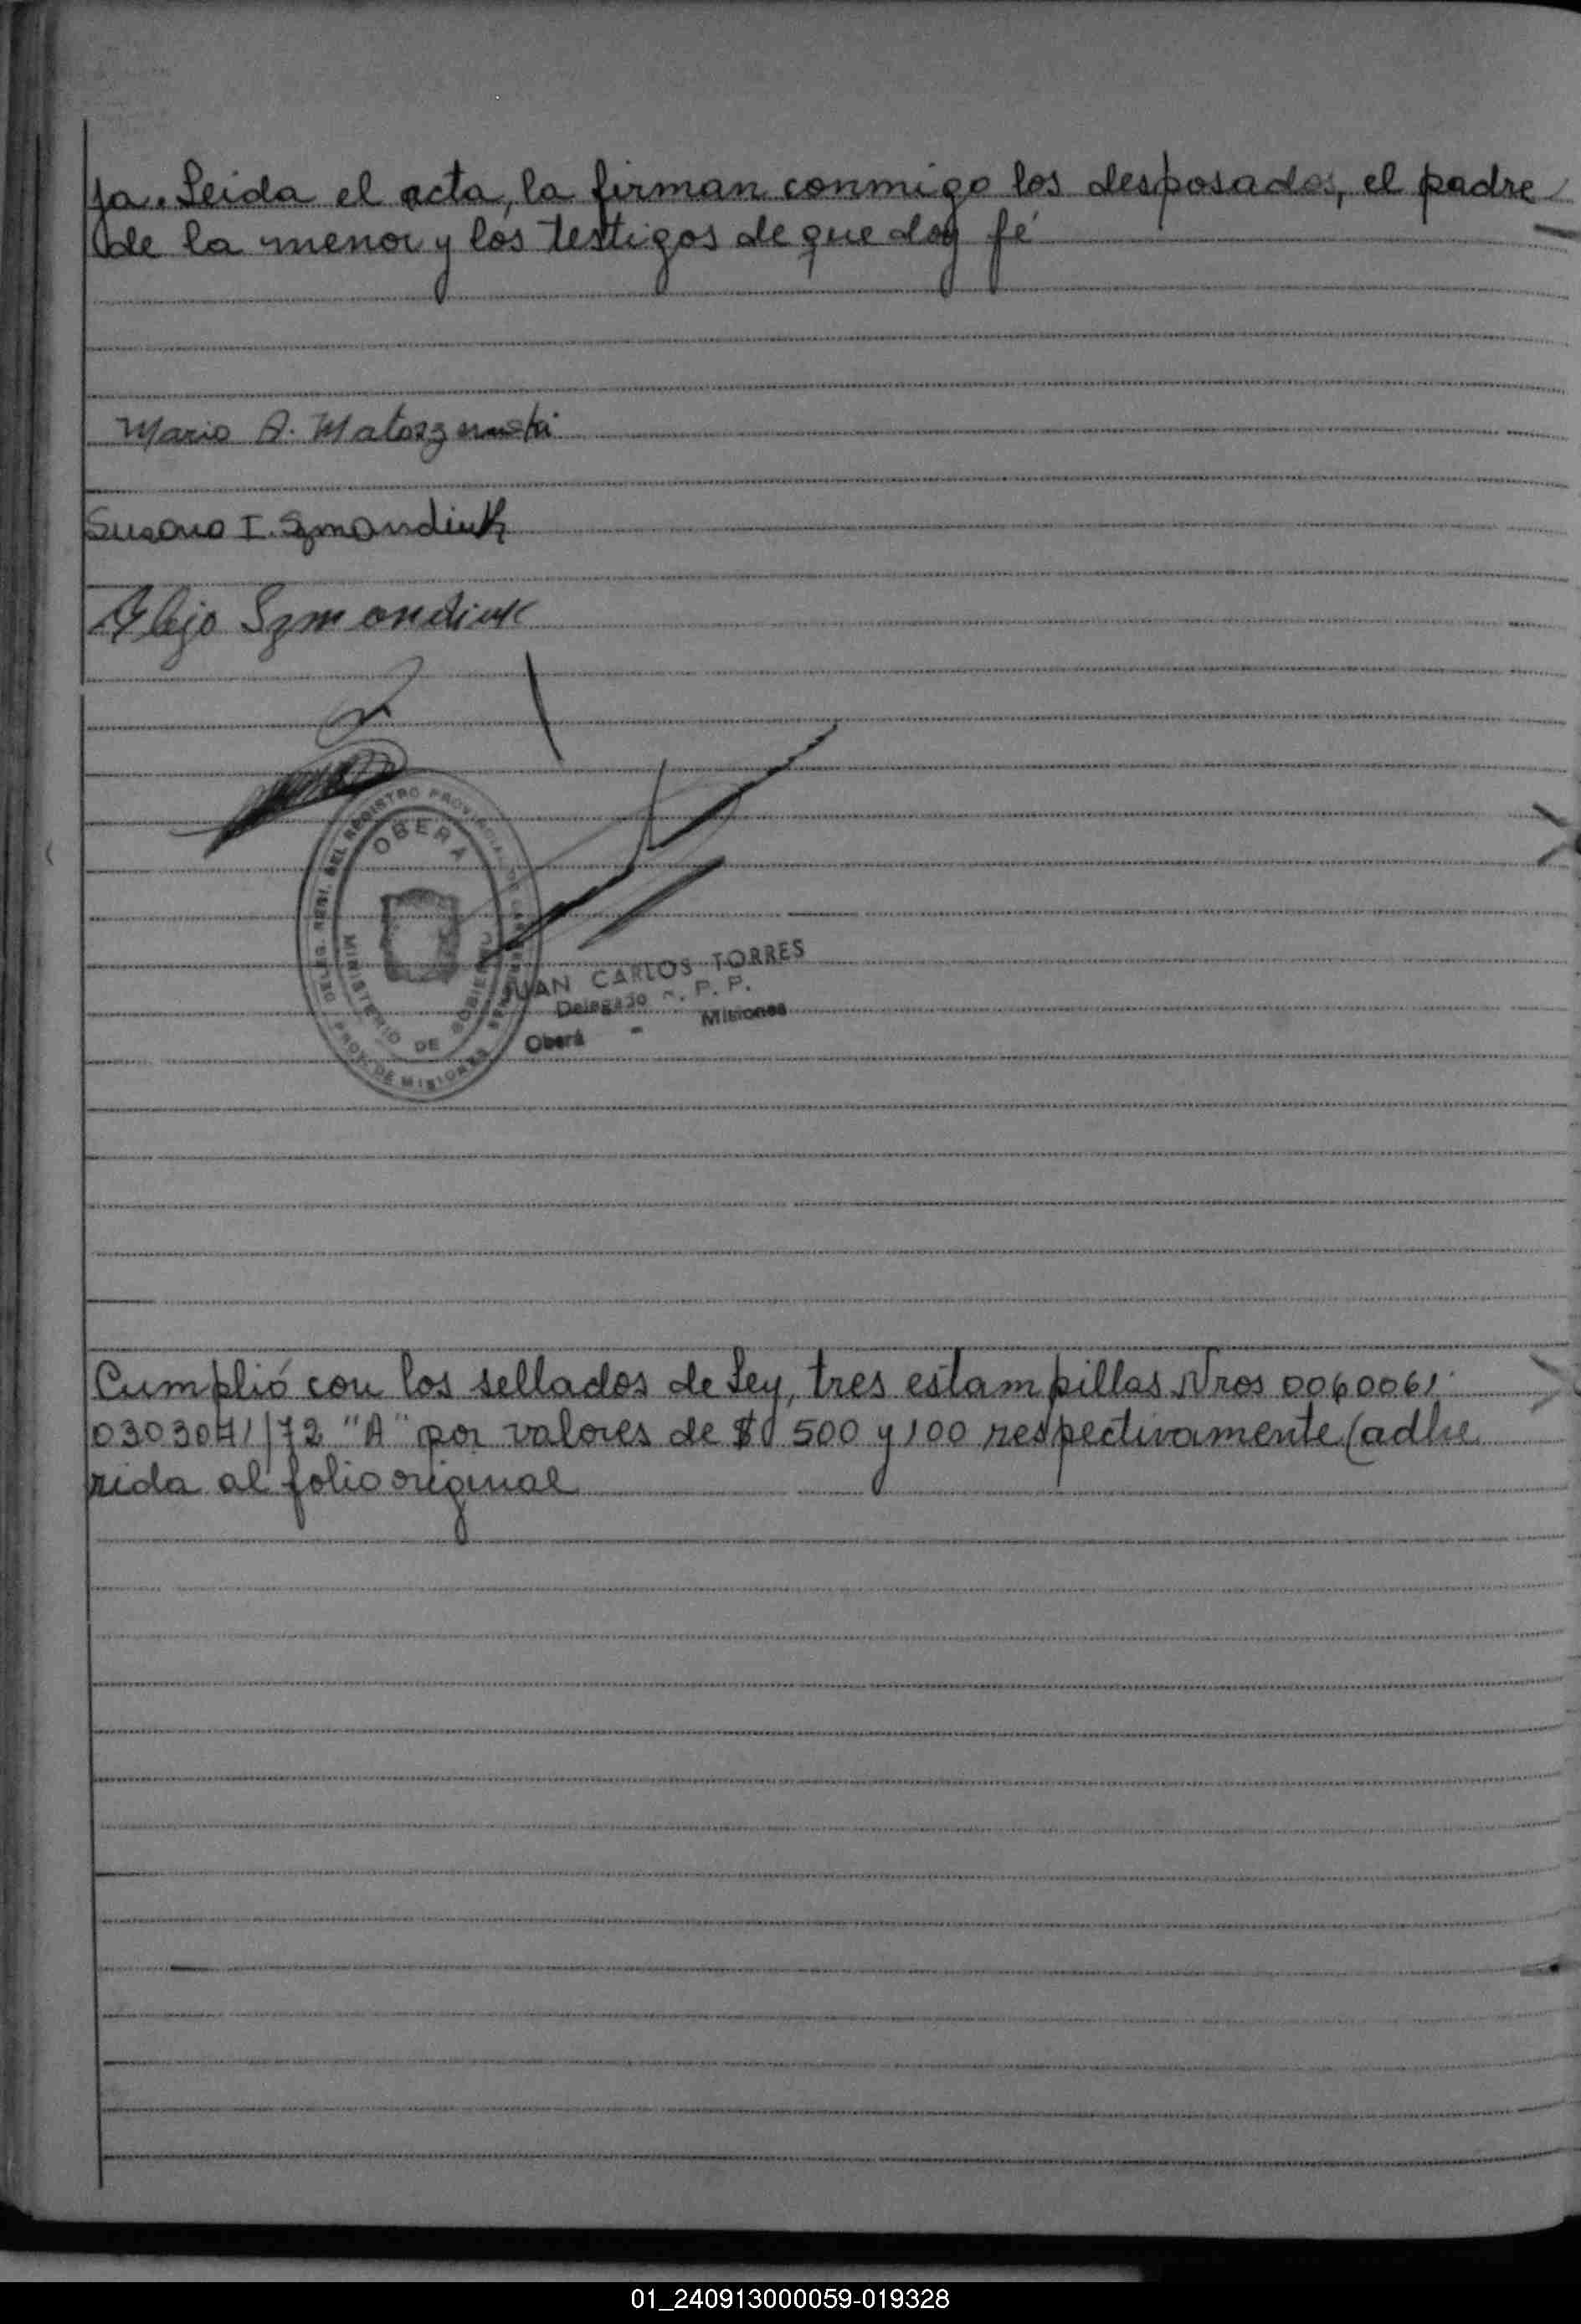 ja. Leida el acta, la firman conmigo los desposados, el padre
de la menor y los testigos de que doy fé
Mario A.
Susana I. Szmondiuk
Alejo Szmondiuk
DELEG. DEL REGISTRO PROVINCIAL DE LAS PERSONAS
OBERA
MINISTERIO DE GOBIERNO
PROV. DE MISIONES
JUAN CARLOS TORRES
Delegado R. P. P.
Oberá - Misiones
Cumplió con los sellados de Ley, tres estampillas Nros 0060061
0303071/72 "A" por valores de $ 500 y 100 respectivamente (adhe
rida al folio original
01_240913000059-019328